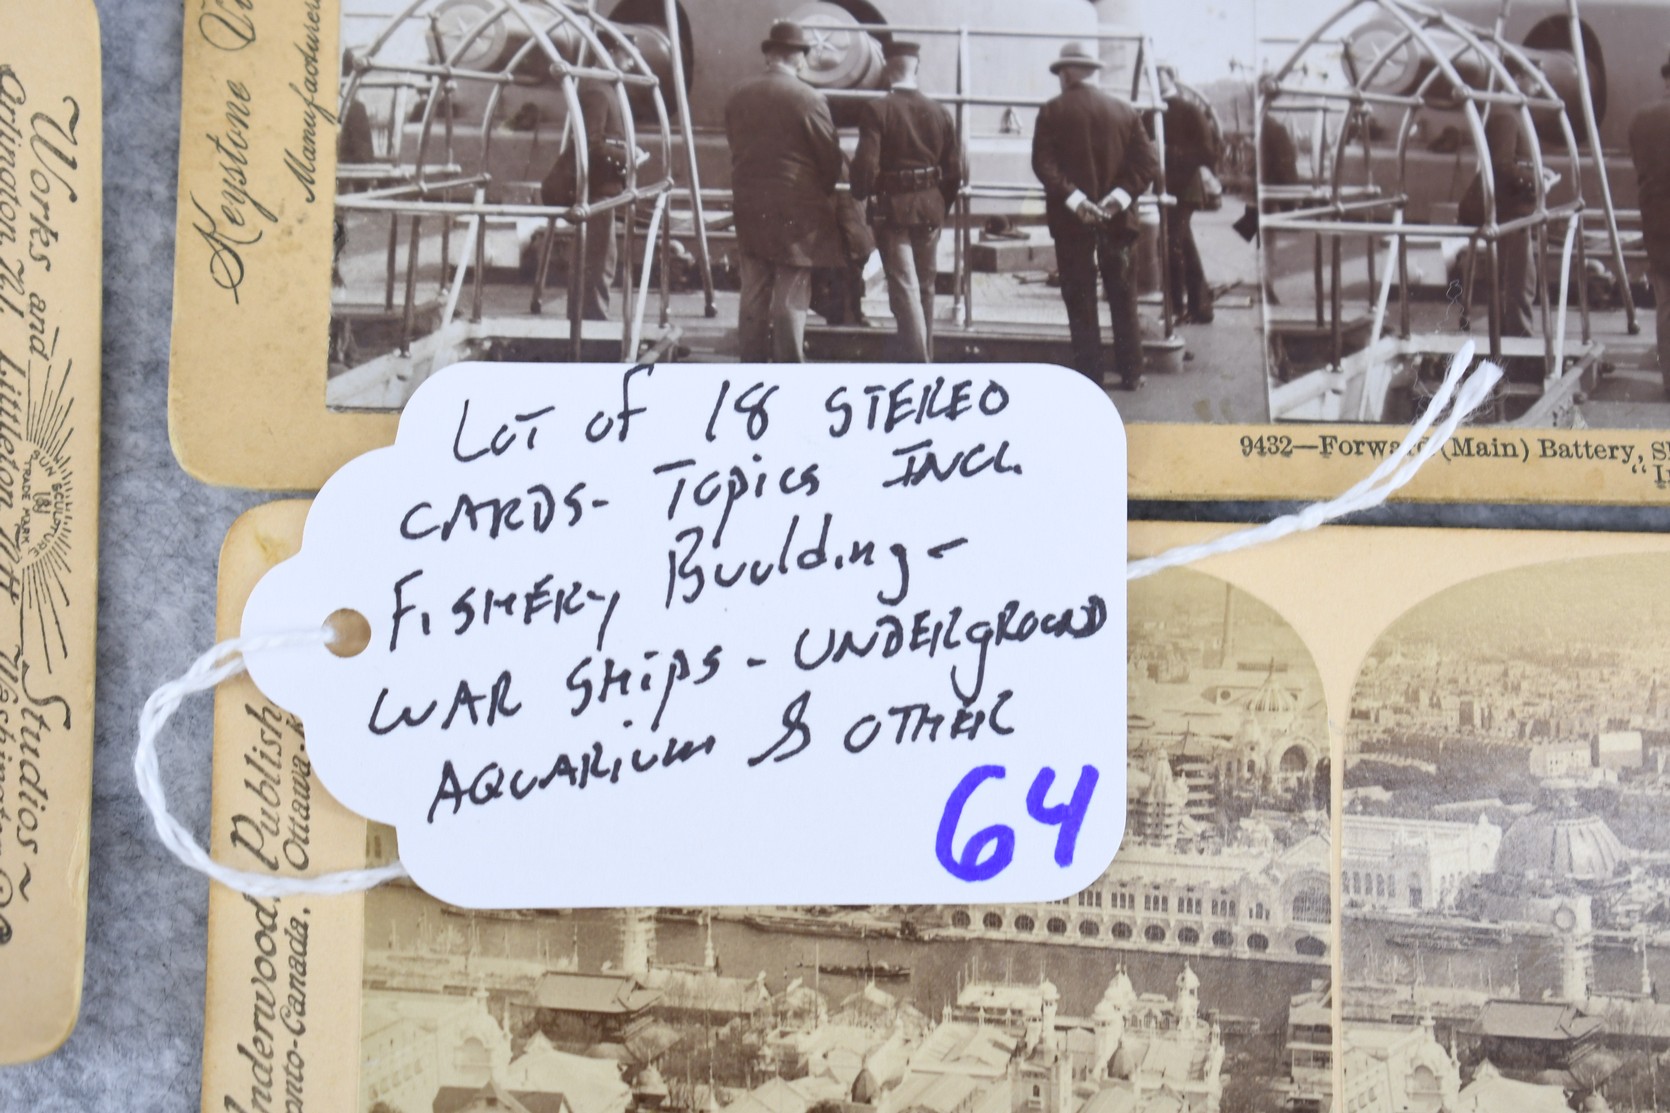 Works and Studios~
Arlington, N.J. Littleton, N.H. Washington, D.C.
SUN SCULPTURE
TRADE MARK
Keystone
Manufacturers
9432—Forward (Main) Battery,
Underwood
Publish
Toronto-Canada. Ottawa
LOT of 18 STEREO
CARDS- Topics INCL.
FISHERY Building-
WAR SHips - UNDERGROUND
AQUARIUM & OTHER
64